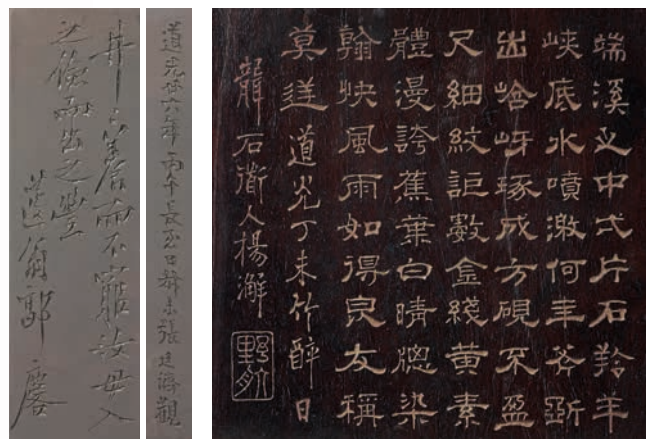 端溪之中弌片石羚羊
峽底水噴激何年斧斲
出岈琢成方硯不盈
尺細紋詎數金綫黃素
體漫誇蕉葉白晴牕染
翰快風雨如得良友稱
莫逆 道光丁未竹醉日
聾石衟人楊澥 野航
道光廿六年丙午長至日叔未張廷濟觀
井之養而不窮汝毋入
之儉而出之豐
蘧翁郭麐